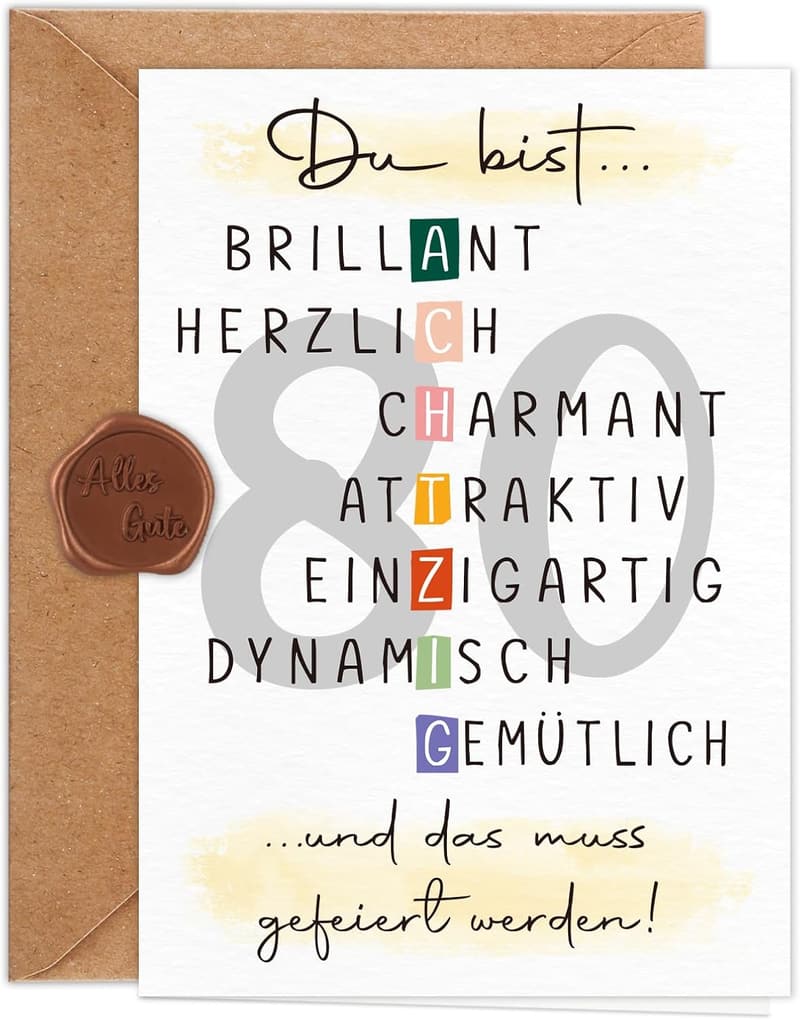 Du bist...
BRILLANT
HERZLICH
CHARMANT
ATTRAKTIV
EINZIGARTIG
DYNAMISCH
GEMÜTLICH
80
...und das muss
gefeiert werden!
Alles
Gute